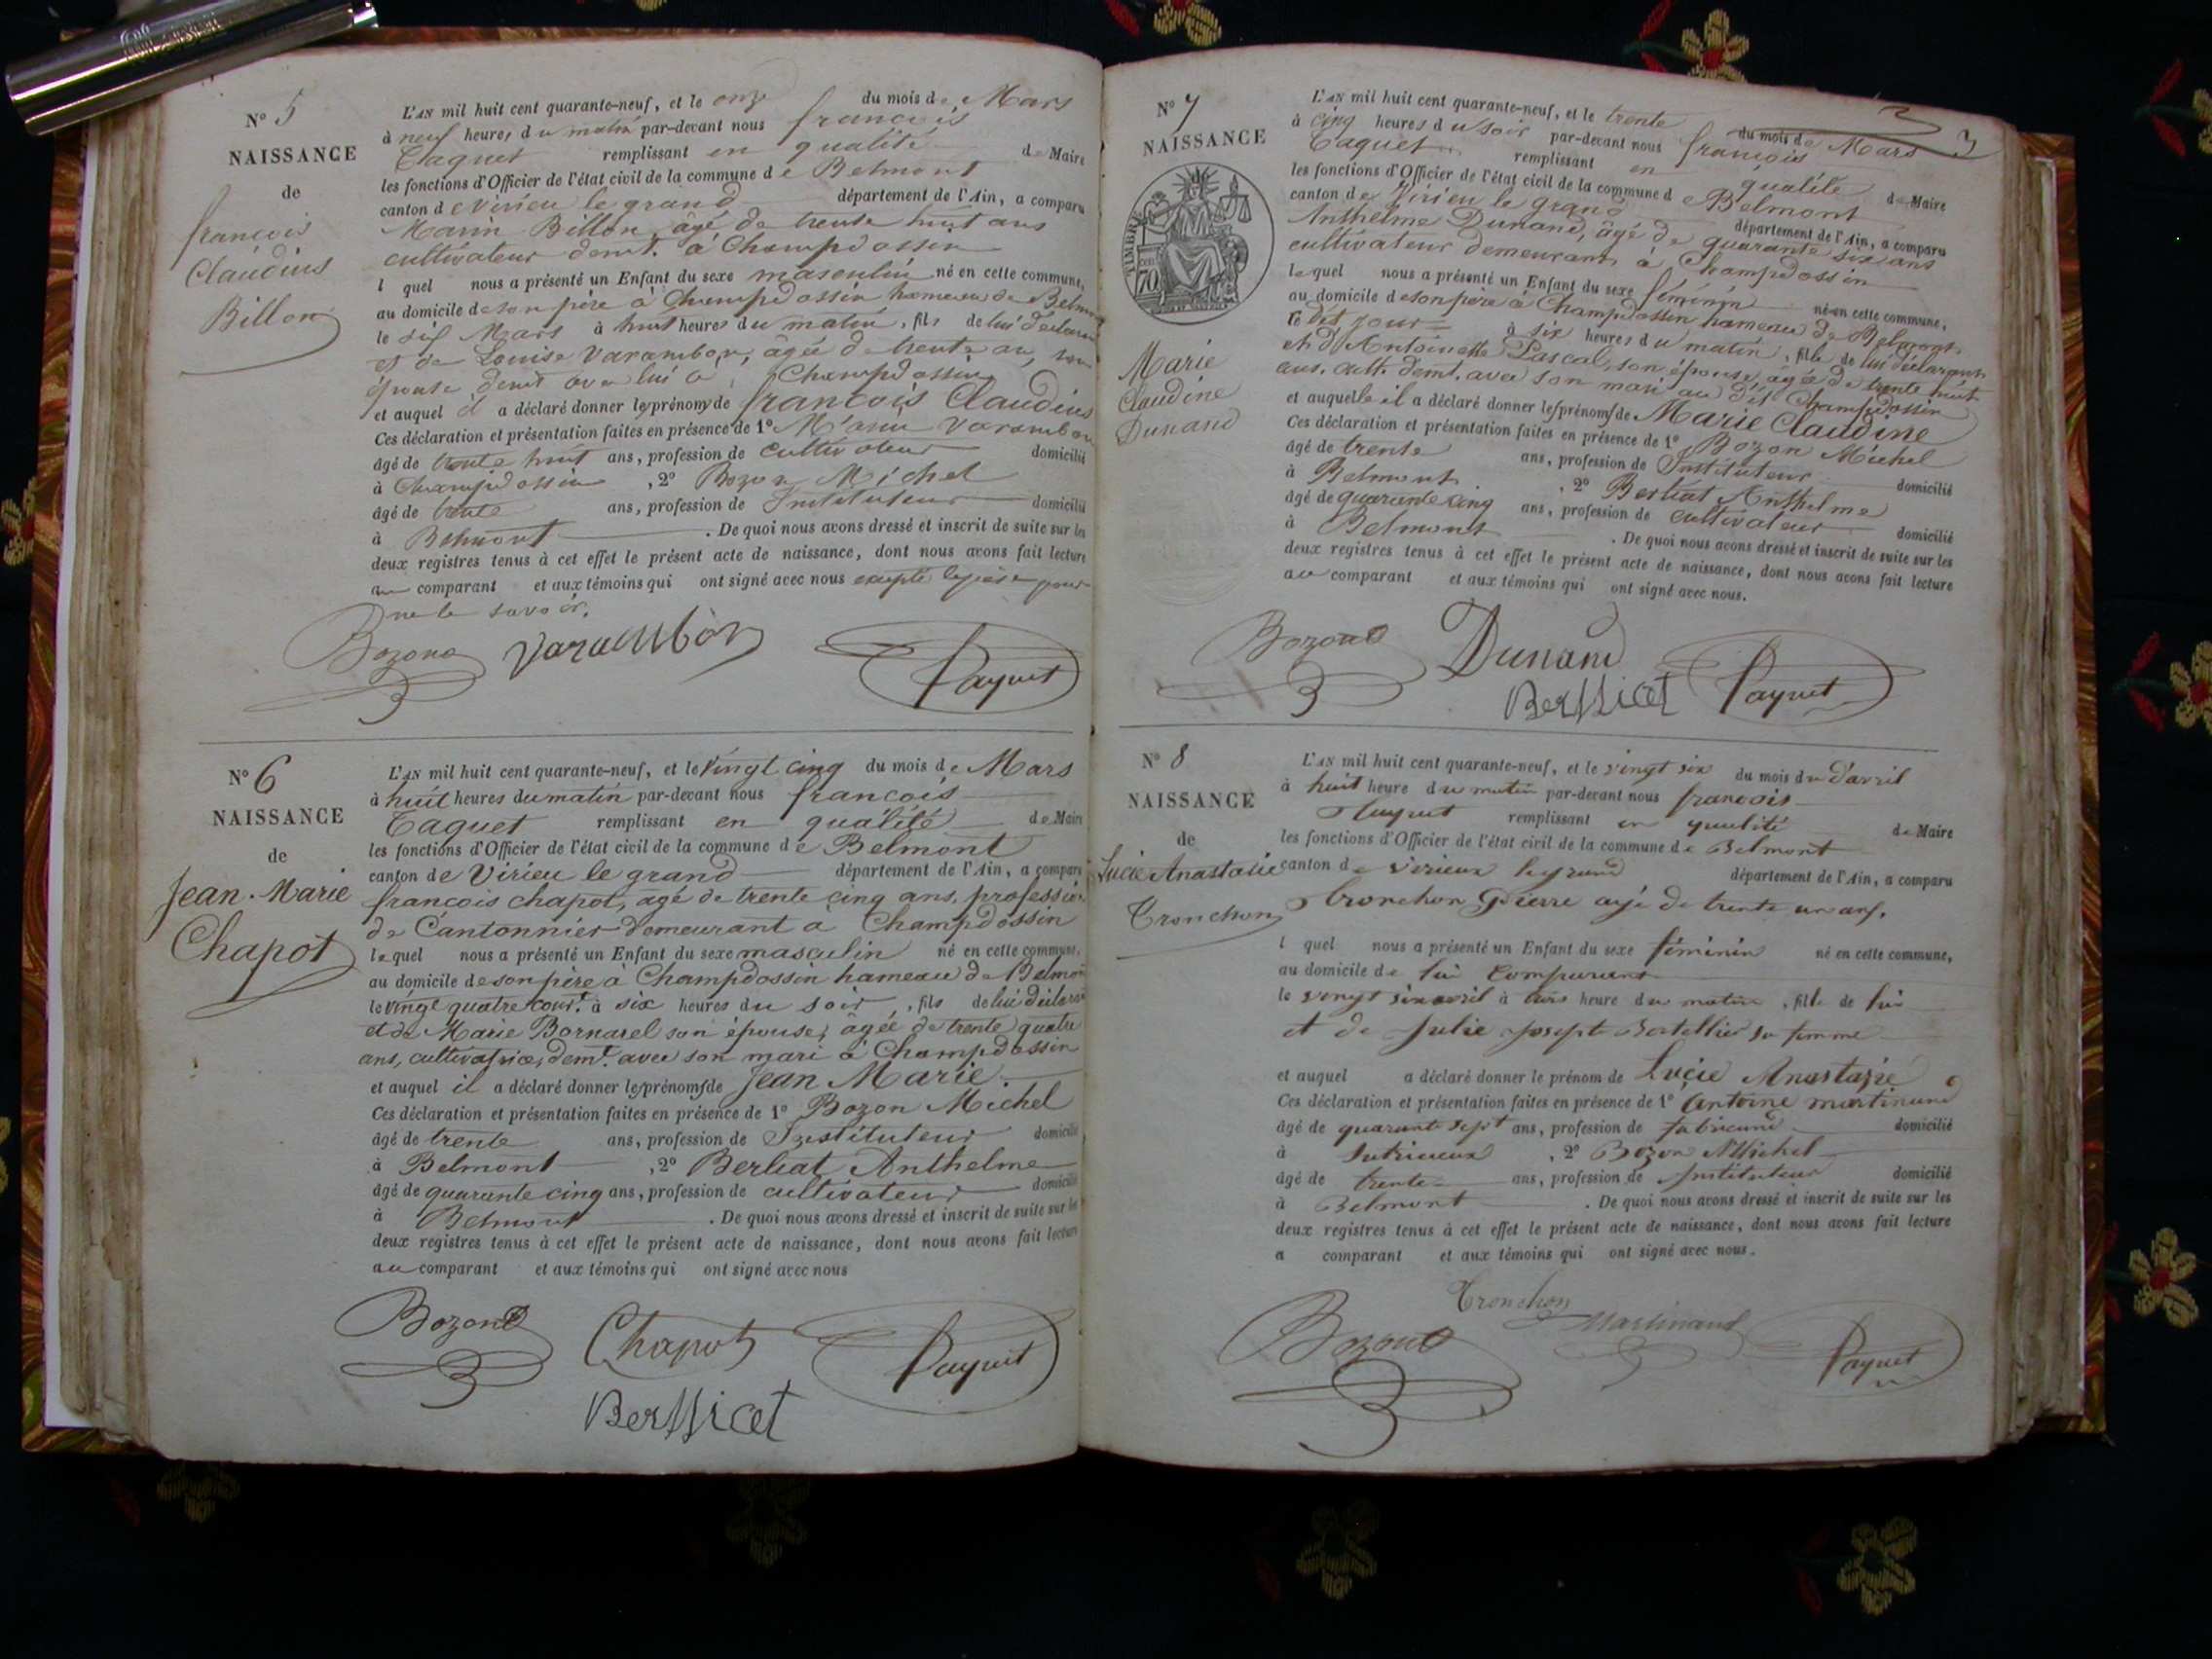 N° 5
NAISSANCE
de
francois
Claudius
Billon
L'AN mil huit cent quarante-neuf, et le onze du mois de Mars
à neuf heures du matin par-devant nous francois
Paquet remplissant en qualité de Maire
les fonctions d'Officier de l'état civil de la commune de Belmont
canton de Virieu le grand département de l'Ain, a comparu
Marin Billon, âgé de trente huit ans
cultivateur demt. à Champdossin
l quel nous a présenté un Enfant du sexe masculin né en cette commune,
au domicile de son père à Champdossin hameau de Belmont
le dix Mars à huit heures du matin, fils de lui déclarant
et de Louise Varambon, âgée de trente ans, son
épouse demt avec lui à Champdossin
et auquel il a déclaré donner les prénoms de francois Claudius
Ces déclaration et présentation faites en présence de 1° Varambon
âgé de trente huit ans, profession de cultivateur domicilié
à Champdossin, 2° Bozon Michel
âgé de trente ans, profession de Instituteur domicilié
à Belmont. De quoi nous avons dressé et inscrit de suite sur les
deux registres tenus à cet effet le présent acte de naissance, dont nous avons fait lecture
au comparant et aux témoins qui ont signé avec nous excepté le père pour
ne le savoir.
Bozon Varambon Paquet
N° 6
NAISSANCE
de
Jean-Marie
Chapot
L'AN mil huit cent quarante-neuf, et le vingt cinq du mois de Mars
à huit heures du matin par-devant nous francois
Paquet remplissant en qualité de Maire
les fonctions d'Officier de l'état civil de la commune de Belmont
canton de Virieu le grand département de l'Ain, a comparu
francois chapot, âgé de trente cinq ans, profession
de Cantonnier demeurant à Champdossin
lequel nous a présenté un Enfant du sexe masculin né en cette commune,
au domicile de son père à Champdossin hameau de Belmont
le vingt quatre court. à six heures du soir, fils de lui déclarant
et de Marie Bornarel son épouse, âgée de trente quatre
ans, cultivatrice, demt. avec son mari à Champdossin
et auquel il a déclaré donner les prénoms de Jean Marie.
Ces déclaration et présentation faites en présence de 1° Bozon Michel
âgé de trente ans, profession de Instituteur domicilié
à Belmont, 2° Berliat Anthelme
âgé de quarante cinq ans, profession de cultivateur domicilié
à Belmont. De quoi nous avons dressé et inscrit de suite sur les
deux registres tenus à cet effet le présent acte de naissance, dont nous avons fait lecture
au comparant et aux témoins qui ont signé avec nous
Bozon Chapot Paquet
Berlliat
N° 7
NAISSANCE
TIMBRE
70
Marie
Claudine
Dunand
L'AN mil huit cent quarante-neuf, et le trente du mois de Mars
à cinq heures du soir par-devant nous francois
Paquet remplissant en qualité de Maire
les fonctions d'Officier de l'état civil de la commune de Belmont
canton de Virieu le grand département de l'Ain, a comparu
Anthelme Dunand, âgé de quarante six ans
cultivateur demeurant à Champdossin
lequel nous a présenté un Enfant du sexe féminin né en cette commune,
au domicile de son père à Champdossin hameau de Belmont,
le dit jour à six heures du matin, fille de lui déclarant
et d'Antoinette Pascal, son épouse, âgée de trente huit
ans, cult. demt. avec son mari au dit Champdossin
et auquelle il a déclaré donner les prénoms de Marie Claudine
Ces déclaration et présentation faites en présence de 1° Bozon Michel
âgé de trente ans, profession de Instituteur domicilié
à Belmont, 2° Berliat Anthelme
âgé de quarante cinq ans, profession de cultivateur domicilié
à Belmont. De quoi nous avons dressé et inscrit de suite sur les
deux registres tenus à cet effet le présent acte de naissance, dont nous avons fait lecture
au comparant et aux témoins qui ont signé avec nous.
Bozon Dunand
Berlliat Paquet
N° 8
NAISSANCE
de
Lucie Anastasie
Tronchon
L'AN mil huit cent quarante-neuf, et le vingt six du mois du d'avril
à huit heure du matin par-devant nous francois
Paquet remplissant en qualité de Maire
les fonctions d'Officier de l'état civil de la commune de Belmont
canton de Virieux le grand département de l'Ain, a comparu
tronchon Pierre agé de trente un ans,
l quel nous a présenté un Enfant du sexe féminin né en cette commune,
au domicile de lui comparant
le vingt six avril à trois heure du matin, fille de lui
et de Julie Joseph Bertellier sa femme
et auquel a déclaré donner le prénom de Lucie Anastasie
Ces déclaration et présentation faites en présence de 1° Antoine martinand
âgé de quarante sept ans, profession de domicilié
à Sutrieux, 2° Bozon Michel
âgé de trente ans, profession de Instituteur domicilié
à Belmont. De quoi nous avons dressé et inscrit de suite sur les
deux registres tenus à cet effet le présent acte de naissance, dont nous avons fait lecture
a comparant et aux témoins qui ont signé avec nous.
Tronchon
Bozon Martinand Paquet